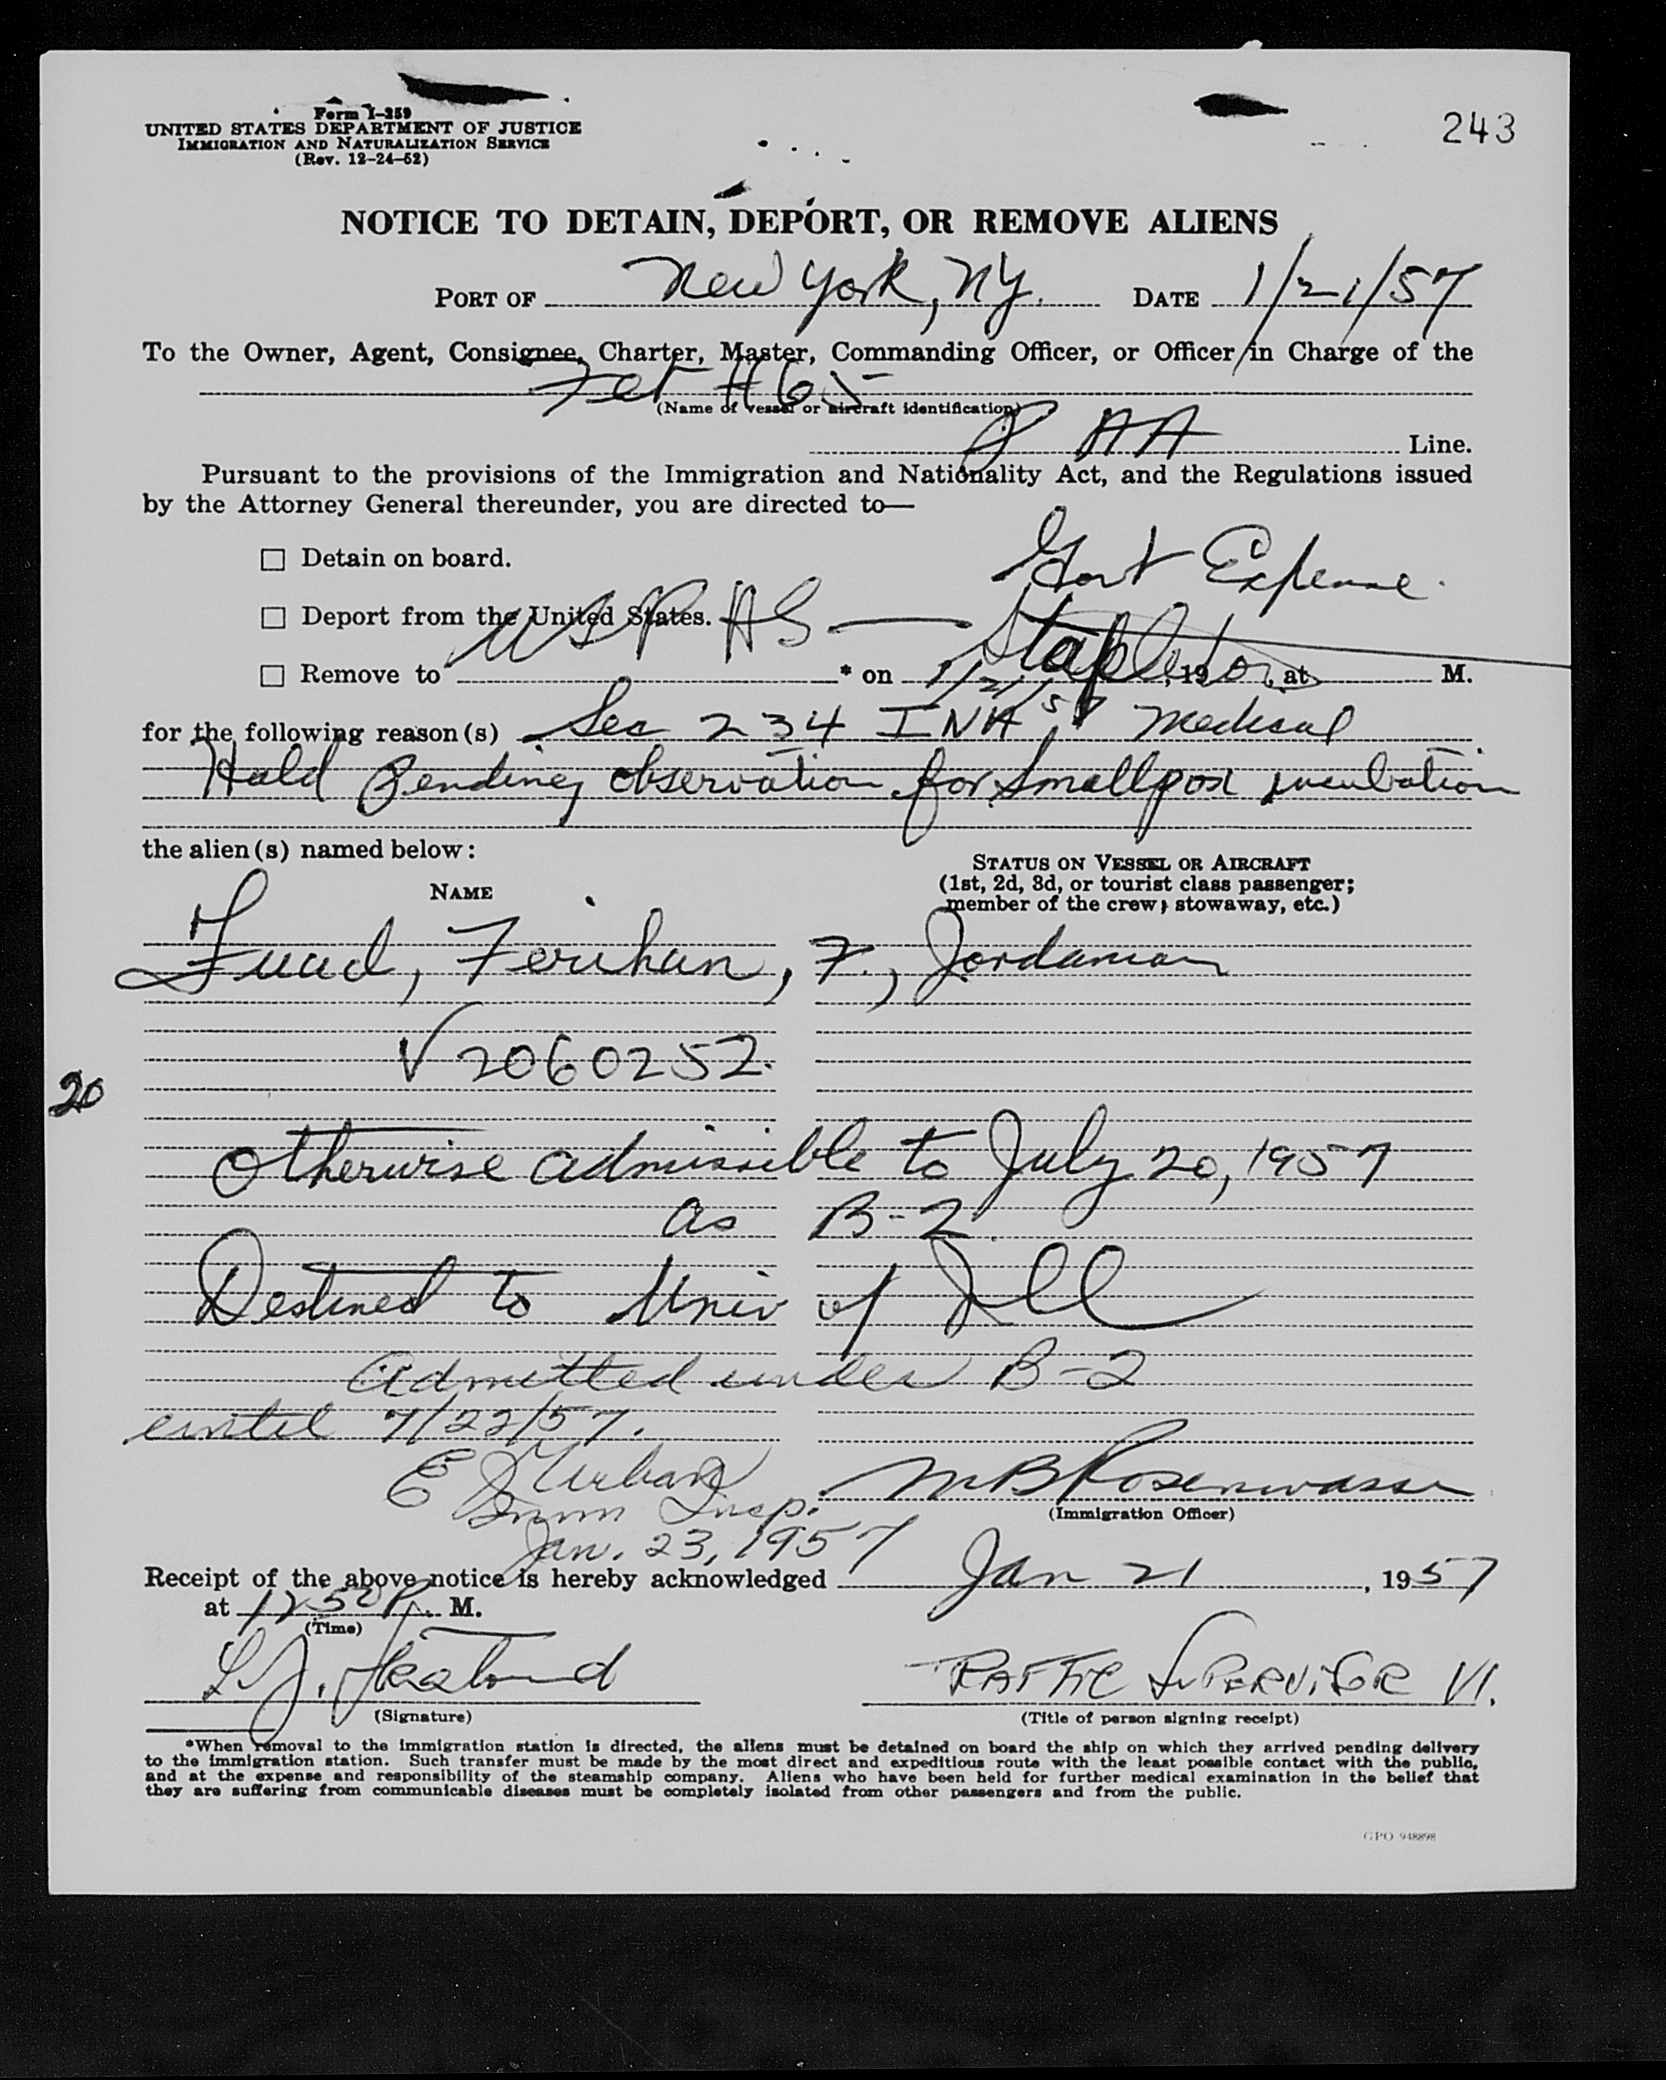 243
Form I-259
UNITED STATES DEPARTMENT OF JUSTICE
IMMIGRATION AND NATURALIZATION SERVICE
(Rev. 12-24-52)
NOTICE TO DETAIN, DEPORT, OR REMOVE ALIENS
PORT OF New York, NY. DATE 1/21/57
To the Owner, Agent, Consignee, Charter, Master, Commanding Officer, or Officer in Charge of the
(Name of vessel or aircraft identification)
P AA Line.
Pursuant to the provisions of the Immigration and Nationality Act, and the Regulations issued
by the Attorney General thereunder, you are directed to—
☐ Detain on board.
Govt Expense.
☐ Deport from the United States.
USPHS — Stapleton
☐ Remove to * on 1/21/57, 19 , at M.
for the following reason(s) Sec 234 INA Medical
Hold Pending observation for Smallpox incubation
the alien(s) named below:
NAME
STATUS ON VESSEL OR AIRCRAFT
(1st, 2d, 3d, or tourist class passenger;
member of the crew, stowaway, etc.)
Fuad, Ferihan, F., Jordanian
V 2060252.
20
Otherwise admissible to July 20, 1957
as B-2.
Destined to Univ of Ill
Admitted under B-2
until 7/22/57.
E J Urban
Imm Insp.
Jan. 23, 1957
M B Rosenwasser
(Immigration Officer)
Receipt of the above notice is hereby acknowledged Jan 21, 1957
at 1250 P. M.
(Time)
L. J.
(Signature)
TRAFFIC SUPERVISOR VI.
(Title of person signing receipt)
*When removal to the immigration station is directed, the aliens must be detained on board the ship on which they arrived pending delivery
to the immigration station. Such transfer must be made by the most direct and expeditious route with the least possible contact with the public,
and at the expense and responsibility of the steamship company. Aliens who have been held for further medical examination in the belief that
they are suffering from communicable diseases must be completely isolated from other passengers and from the public.
GPO 948898